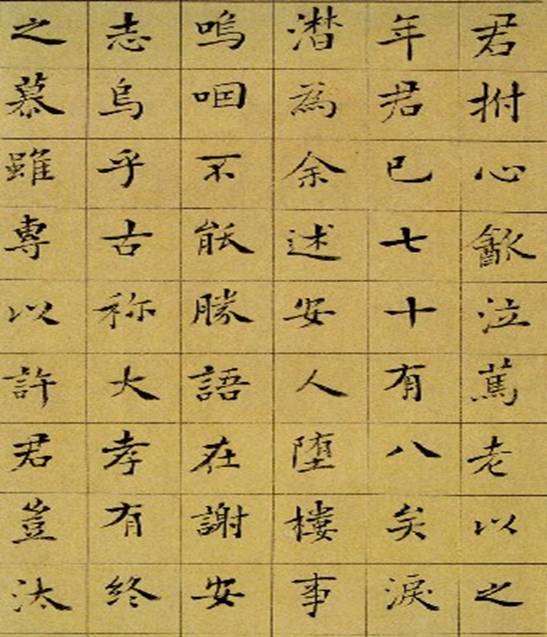 君拊心㱃泣篤老以之
年君已七十有八矣淚
潜為余述安人墮樓事
嗚咽不能勝語在謝安
志烏乎古称大孝有終
之慕雖專以許君豈汰